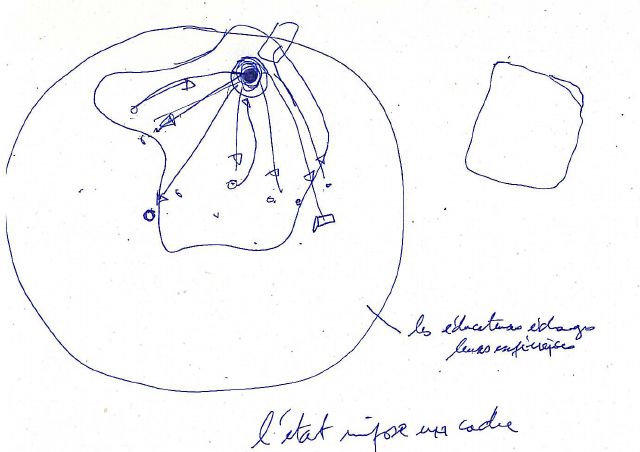 les éducateurs échanges
leurs expériences
l'état impose un cadre